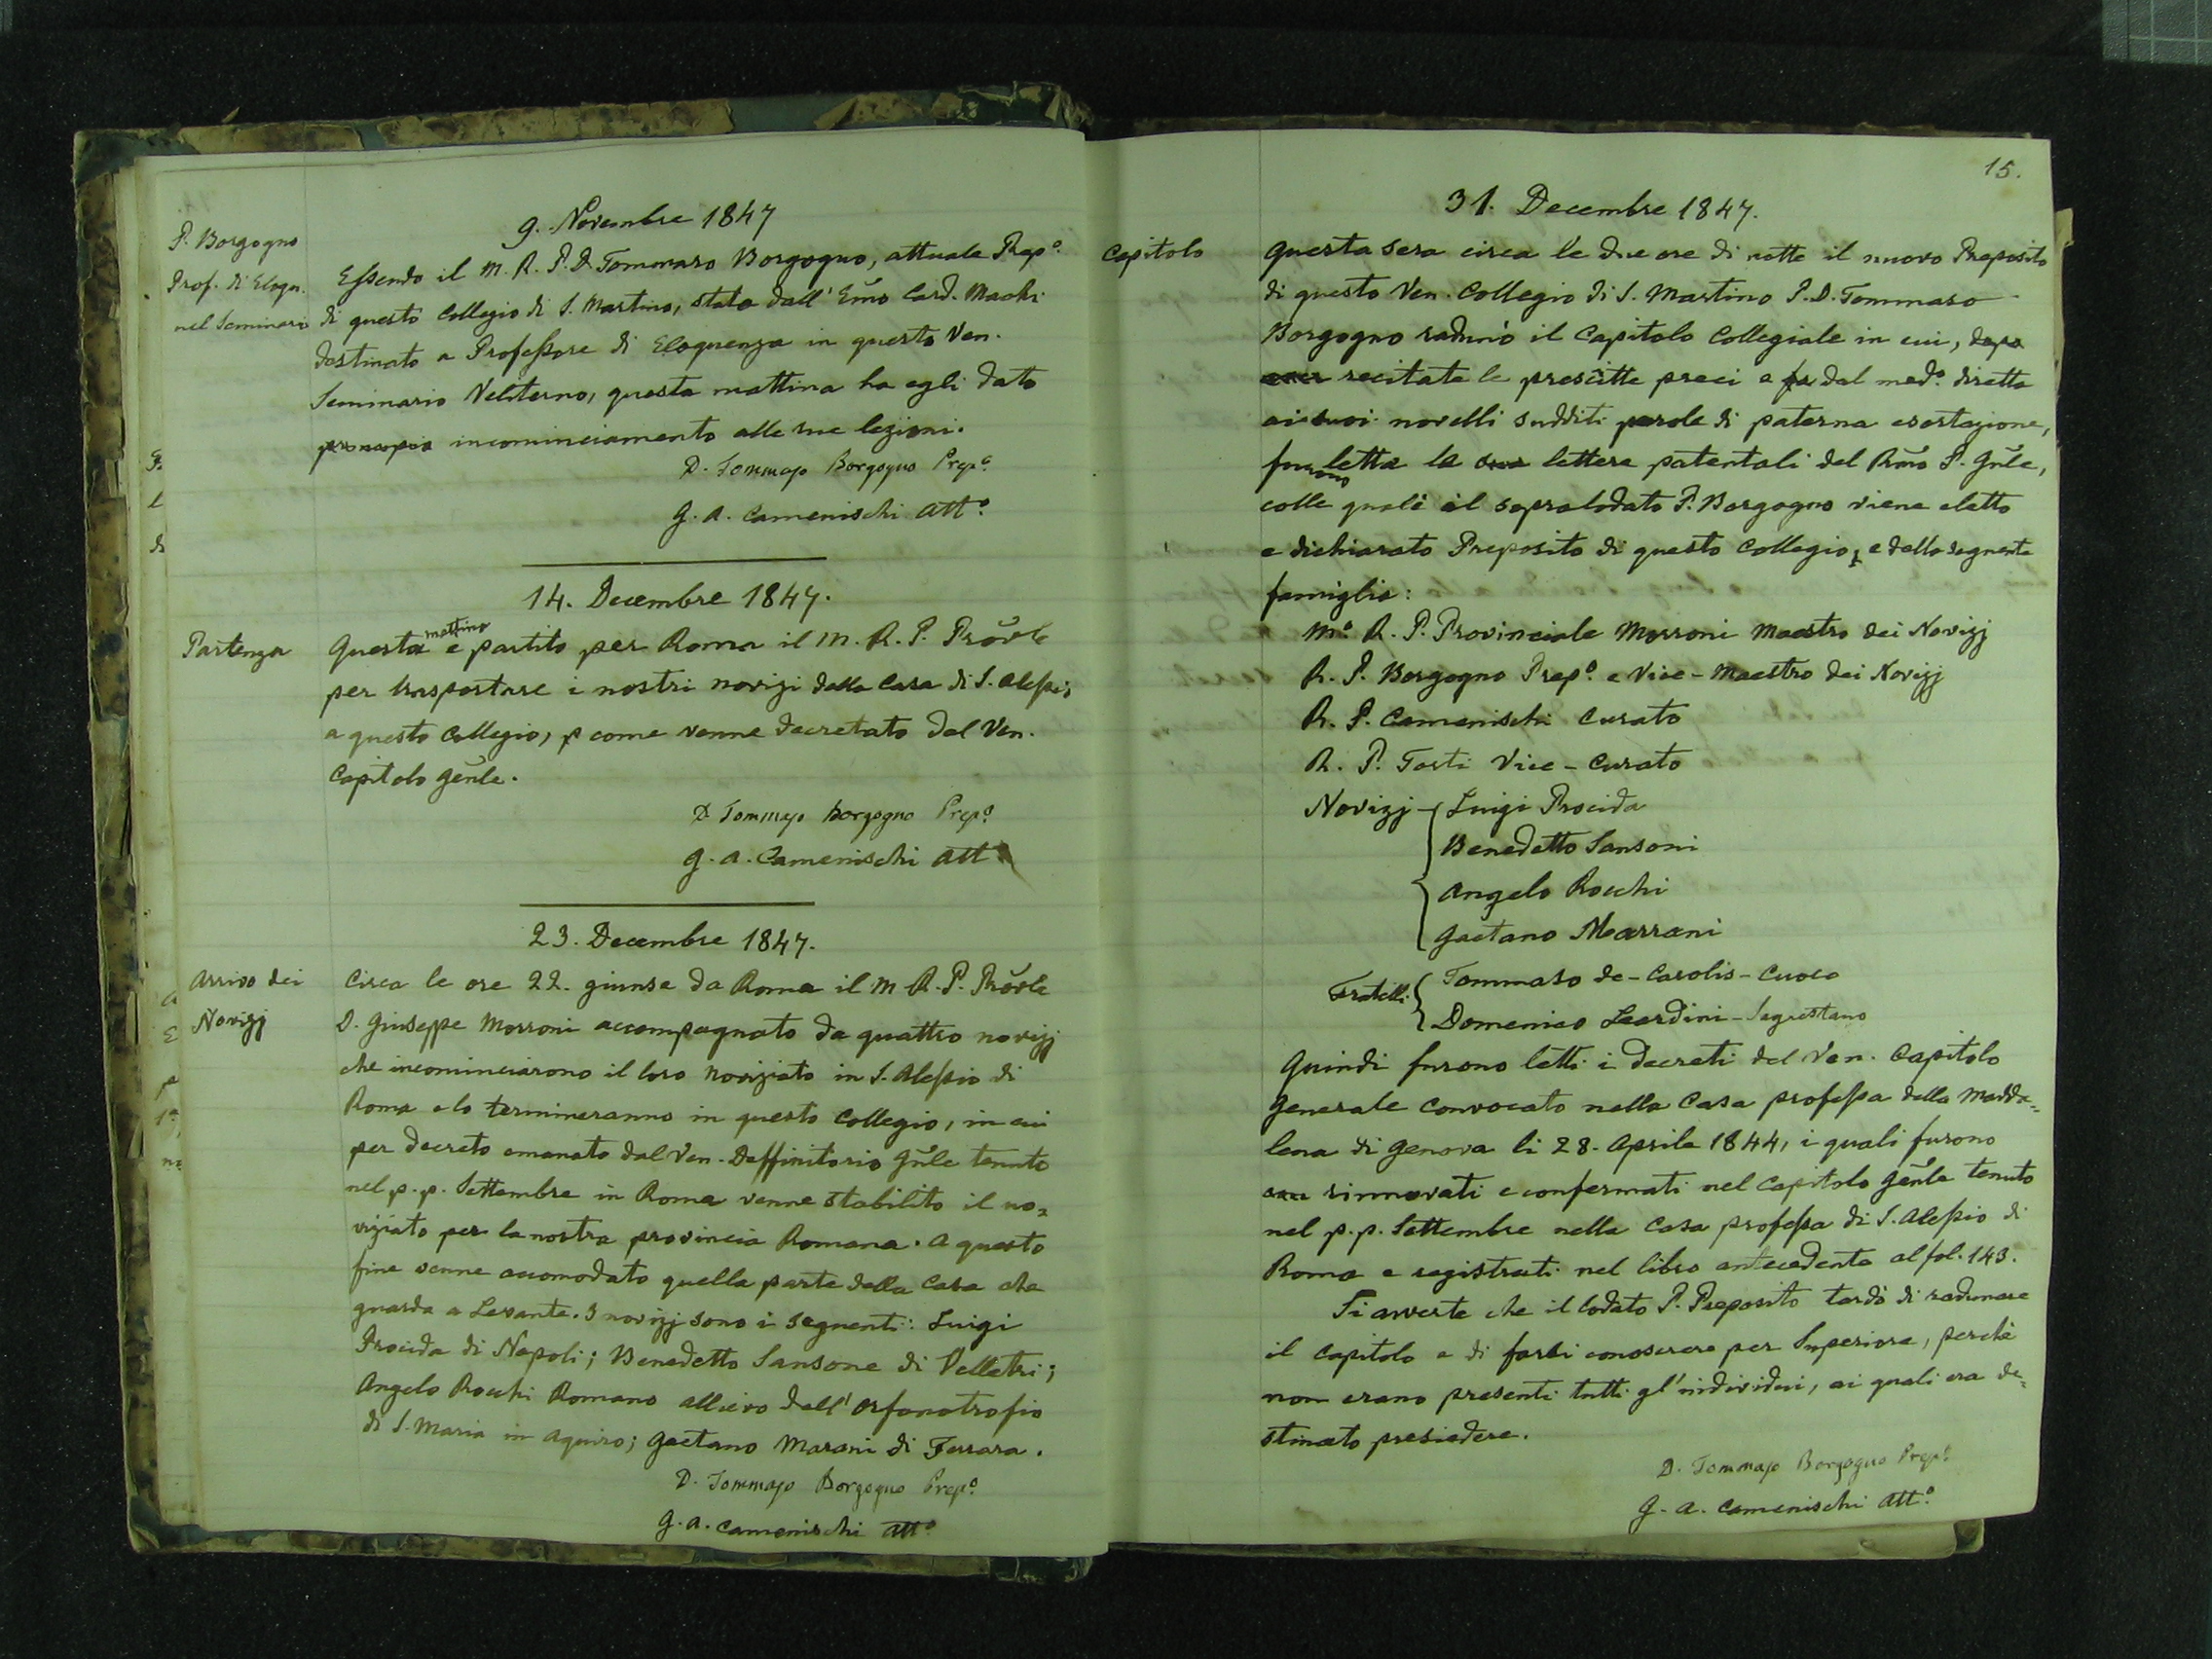 P. Borgogno
Prof. di Eloqu.
nel Seminario
9. Novembre 1847
Essendo il M. R. P. D. Tommaso Borgogno, attuale Prep.o
di questo Collegio di S. Martino, stato dall' Emo Card. Machi
destinato a Professore di Eloquenza in questo Ven.
Seminario Veliterno, questa mattina ha egli dato
principio incominciamento alle sue lezioni.
D. Tommaso Borgogno Prep.o
G. A. Camenischi Att.o
14. Decembre 1847.
Partenza
Questa mattina e partito per Roma il M. R. P. Prõvle
per trasportare i nostri novizi dalla Casa di S. Alessio
a questo Collegio, come venne decretato dal Ven.
Capitolo Gẽnle.
D Tommaso Borgogno Prep.o
G. A. Camenischi Att.o
23. Decembre 1847.
Arrivo dei
Novizj
Circa le ore 22. giunse da Roma il M R. P. Prõvle
D. Giuseppe Morroni accompagnato da quattro novizj
che incominciarono il loro noviziato in S. Alessio di
Roma e lo termineranno in questo Collegio, in cui
per decreto emanato dal Ven. Deffinitorio Gñle tenuto
nel p. p. Settembre in Roma venne stabilito il no=
viziato per la nostra provincia Romana. A questo
fine venne accomodato quella parte della Casa che
guarda a Levante. I novizj sono i seguenti: Luigi
Procida di Napoli; Benedetto Sansone di Velletri;
Angelo Rocchi Romano allievo dell' Orfanotrofio
di S. Maria in Aquiro; Gaetano Marani di Ferrara.
D. Tommaso Borgogno Prep.o
G. A. Camenischi Att.o
15.
31. Decembre 1847.
Capitolo
Questa sera circa le due ore di notte il nuovo Preposito
di questo Ven. Collegio di S. Martino P. D. Tommaso
Borgogno radunò il Capitolo Collegiale in cui, dopo
recitate le prescritte preci e fu dal med.o diretta
ai suoi novelli sudditi parole di paterna esortazione,
furono letta le lettere patentali del Rmo P. Gñle,
colle quali il sopralodato P. Borgogno viene eletto
e dichiarato Preposito di questo Collegio, e della seguente
famiglia:
M.o R. P. Provinciale Morroni Maestro dei Novizj
R. P. Borgogno Prep.o e Vice-Maestro dei Novizj
R. P. Camenischi Curato
R. P. Tosti Vice-Curato
Novizj - Luigi Procida
Benedetto Sansoni
Angelo Rocchi
Gaetano Marrani
Fratelli Tommaso de-Carolis-Cuoco
Domenico Leardini-Sagrestano
Quindi furono letti i decreti del Ven. Capitolo
Generale convocato nella Casa professa della Madda=
lena di Genova li 28. Aprile 1844, i quali furono
rinnovati e confermati nel Capitolo Gẽnle tenuto
nel p. p. Settembre nella Casa professa di S. Alessio di
Roma e registrati nel libro antecedente al fol. 143.
Si avverte che il lodato P. Preposito tardò di radunare
il Capitolo e di farsi conoscere per Superiore, perchè
non erano presenti tutti gl' individui, ai quali era de=
stinato presiedere.
D. Tommaso Borgogno Prep.o
G. A. Camenischi Att.o